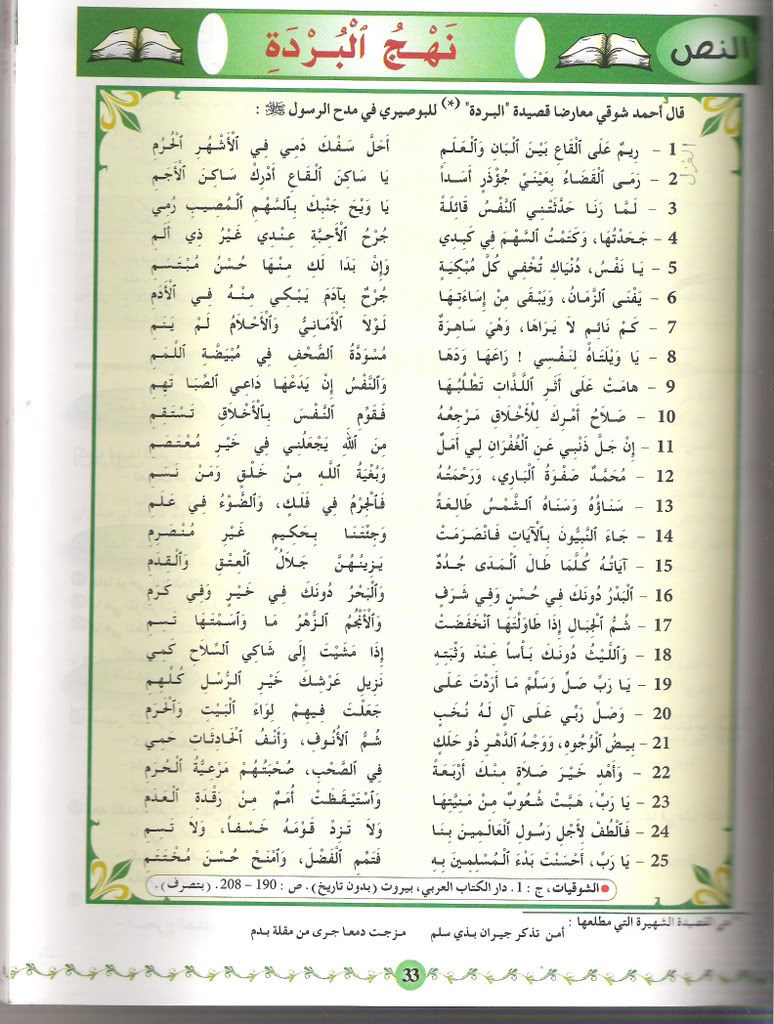 النص
نَهْجُ الْبُرْدَةِ
قال أحمد شوقي معارضا قصيدة "البردة" (*) للبوصيري في مدح الرسول ﷺ :
الغزل
1 - رِيمٌ عَلَى الْقَاعِ بَيْنَ الْبَانِ وَالْعَلَمِ أَحَلَّ سَفْكَ دَمِي فِي الْأَشْهُرِ الْحُرُمِ
2 - رَمَى الْقَضَاءُ بِعَيْنَيْ جُؤْذَرٍ أَسَداً يَا سَاكِنَ الْقَاعِ أَدْرِكْ سَاكِنَ الْأَجَمِ
3 - لَمَّا رَنَا حَدَّثَتْنِي النَّفْسُ قَائِلَةً يَا وَيْحَ جَنْبِكَ بِالسَّهْمِ الْمُصِيبِ رُمِي
4 - جَحَدْتُهَا، وَكَتَمْتُ السَّهْمَ فِي كَبِدِي جُرْحُ الْأَحِبَّةِ عِنْدِي غَيْرُ ذِي أَلَمِ
5 - يَا نَفْسُ، دُنْيَاكِ تُخْفِي كُلَّ مُبْكِيَةٍ وَإِنْ بَدَا لَكِ مِنْهَا حُسْنُ مُبْتَسَمِ
6 - يَفْنَى الزَّمَانُ، وَيَبْقَى مِنْ إِسَاءَتِهَا جُرْحٌ بِآدَمَ يَبْكِي مِنْهُ فِي الْأَدَمِ
7 - كَمْ نَائِمٍ لاَ يَرَاهَا، وَهْيَ سَاهِرَةٌ لَوْلاَ الْأَمَانِيُّ وَالْأَحْلاَمُ لَمْ يَنَمِ
8 - يَا وَيْلَتَاهُ لِنَفْسِي ! رَاعَهَا وَدَهَا مُسْوَدَّةُ الصُّحْفِ فِي مُبْيَضَّةِ اللِّمَمِ
9 - هامَتْ عَلَى أَثَرِ اللَّذَّاتِ تَطْلُبُهَا وَالنَّفْسُ إِنْ يَدْعُهَا دَاعِي الصِّبَا تَهِمِ
10 - صَلاَحُ أَمْرِكَ لِلْأَخْلاَقِ مَرْجِعُهُ فَقَوِّمِ النَّفْسَ بِالْأَخْلاَقِ تَسْتَقِمِ
11 - إِنْ جَلَّ ذَنْبِي عَنِ الْغُفْرَانِ لِي أَمَلٌ مِنَ اللهِ يَجْعَلُنِي فِي خَيْرِ مُعْتَصَمِ
12 - مُحَمَّدٌ صَفْوَةُ الْبَارِي، وَرَحْمَتُهُ وَبُغْيَةُ اللَّهِ مِنْ خَلْقٍ وَمَنْ نَسَمِ
13 - سَنَاؤُهُ وَسَنَاهُ الشَّمْسُ طَالِعَةً فَالْجِرْمُ فِي فَلَكٍ، وَالضَّوْءُ فِي عَلَمِ
14 - جَاءَ النَّبِيُّونَ بِالْآيَاتِ فَانْصَرَمَتْ وَجِئْتَنَا بِحَكِيمٍ غَيْرِ مُنْصَرِمِ
15 - آيَاتُهُ كُلَّمَا طَالَ الْمَدَى جُدُدٌ يَزِينُهُنَّ جَلاَلُ الْعِتْقِ وَالْقِدَمِ
16 - الْبَدْرُ دُونَكَ فِي حُسْنٍ وَفِي شَرَفٍ وَالْبَحْرُ دُونَكَ فِي خَيْرٍ وَفِي كَرَمِ
17 - شُمُّ الْجِبَالِ إِذَا طَاوَلْتَهَا انْخَفَضَتْ وَالْأَنْجُمُ الزُّهْرُ مَا وَاسَمْتَهَا تَسِمِ
18 - وَاللَّيْثُ دُونَكَ بَأْساً عِنْدَ وَثْبَتِهِ إِذَا مَشَيْتَ إِلَى شَاكِي السِّلاَحِ كَمِي
19 - يَا رَبِّ صَلِّ وَسَلِّمْ مَا أَرَدْتَ عَلَى نَزِيلِ عَرْشِكَ خَيْرِ الرُّسْلِ كُلِّهِمِ
20 - وَصَلِّ رَبِّي عَلَى آلٍ لَهُ نُخَبٍ جَعَلْتَ فِيهِمْ لِوَاءَ الْبَيْتِ وَالْحَرَمِ
21 - بِيضُ الْوُجُوهِ، وَوَجْهُ الدَّهْرِ ذُو حَلَكٍ شُمُّ الْأُنُوفِ، وَأَنْفُ الْحَادِثَاتِ حَمِي
22 - وَأَهْدِ خَيْرَ صَلاَةٍ مِنْكَ أَرْبَعَةً فِي الصَّحْبِ، صُحْبَتُهُمْ مَرْعِيَّةُ الْحُرَمِ
23 - يَا رَبِّ، هَبَّتْ شُعُوبٌ مِنْ مَنِيَّتِهَا وَاسْتَيْقَظَتْ أُمَمٌ مِنْ رَقْدَةِ الْعَدَمِ
24 - فَالْطُفْ لِأَجْلِ رَسُولِ الْعَالَمِينَ بِنَا وَلاَ تَزِدْ قَوْمَهُ خَسْفاً، وَلاَ تَسِمِ
25 - يَا رَبِّ، أَحْسَنْتَ بَدْءَ الْمُسْلِمِينَ بِهِ فَتَمِّمِ الْفَضْلَ، وَامْنَحْ حُسْنَ مُخْتَتَمِ
الشوقيات، ج : 1. دار الكتاب العربي، بيروت (بدون تاريخ). ص : 190 - 208. (بتصرف).
القصيدة الشهيرة التي مطلعها :
أمن تذكر جيران بذي سلم مزجت دمعا جرى من مقلة بدم
33